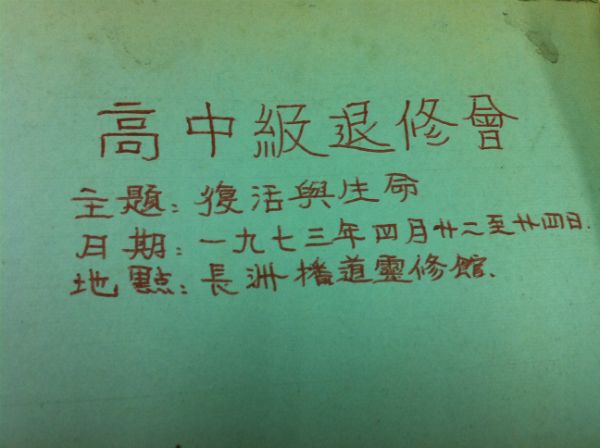 高中級退修會
主題：復活與生命
日期：一九七三年四月廿二至廿四日.
地點：長洲播道靈修館.